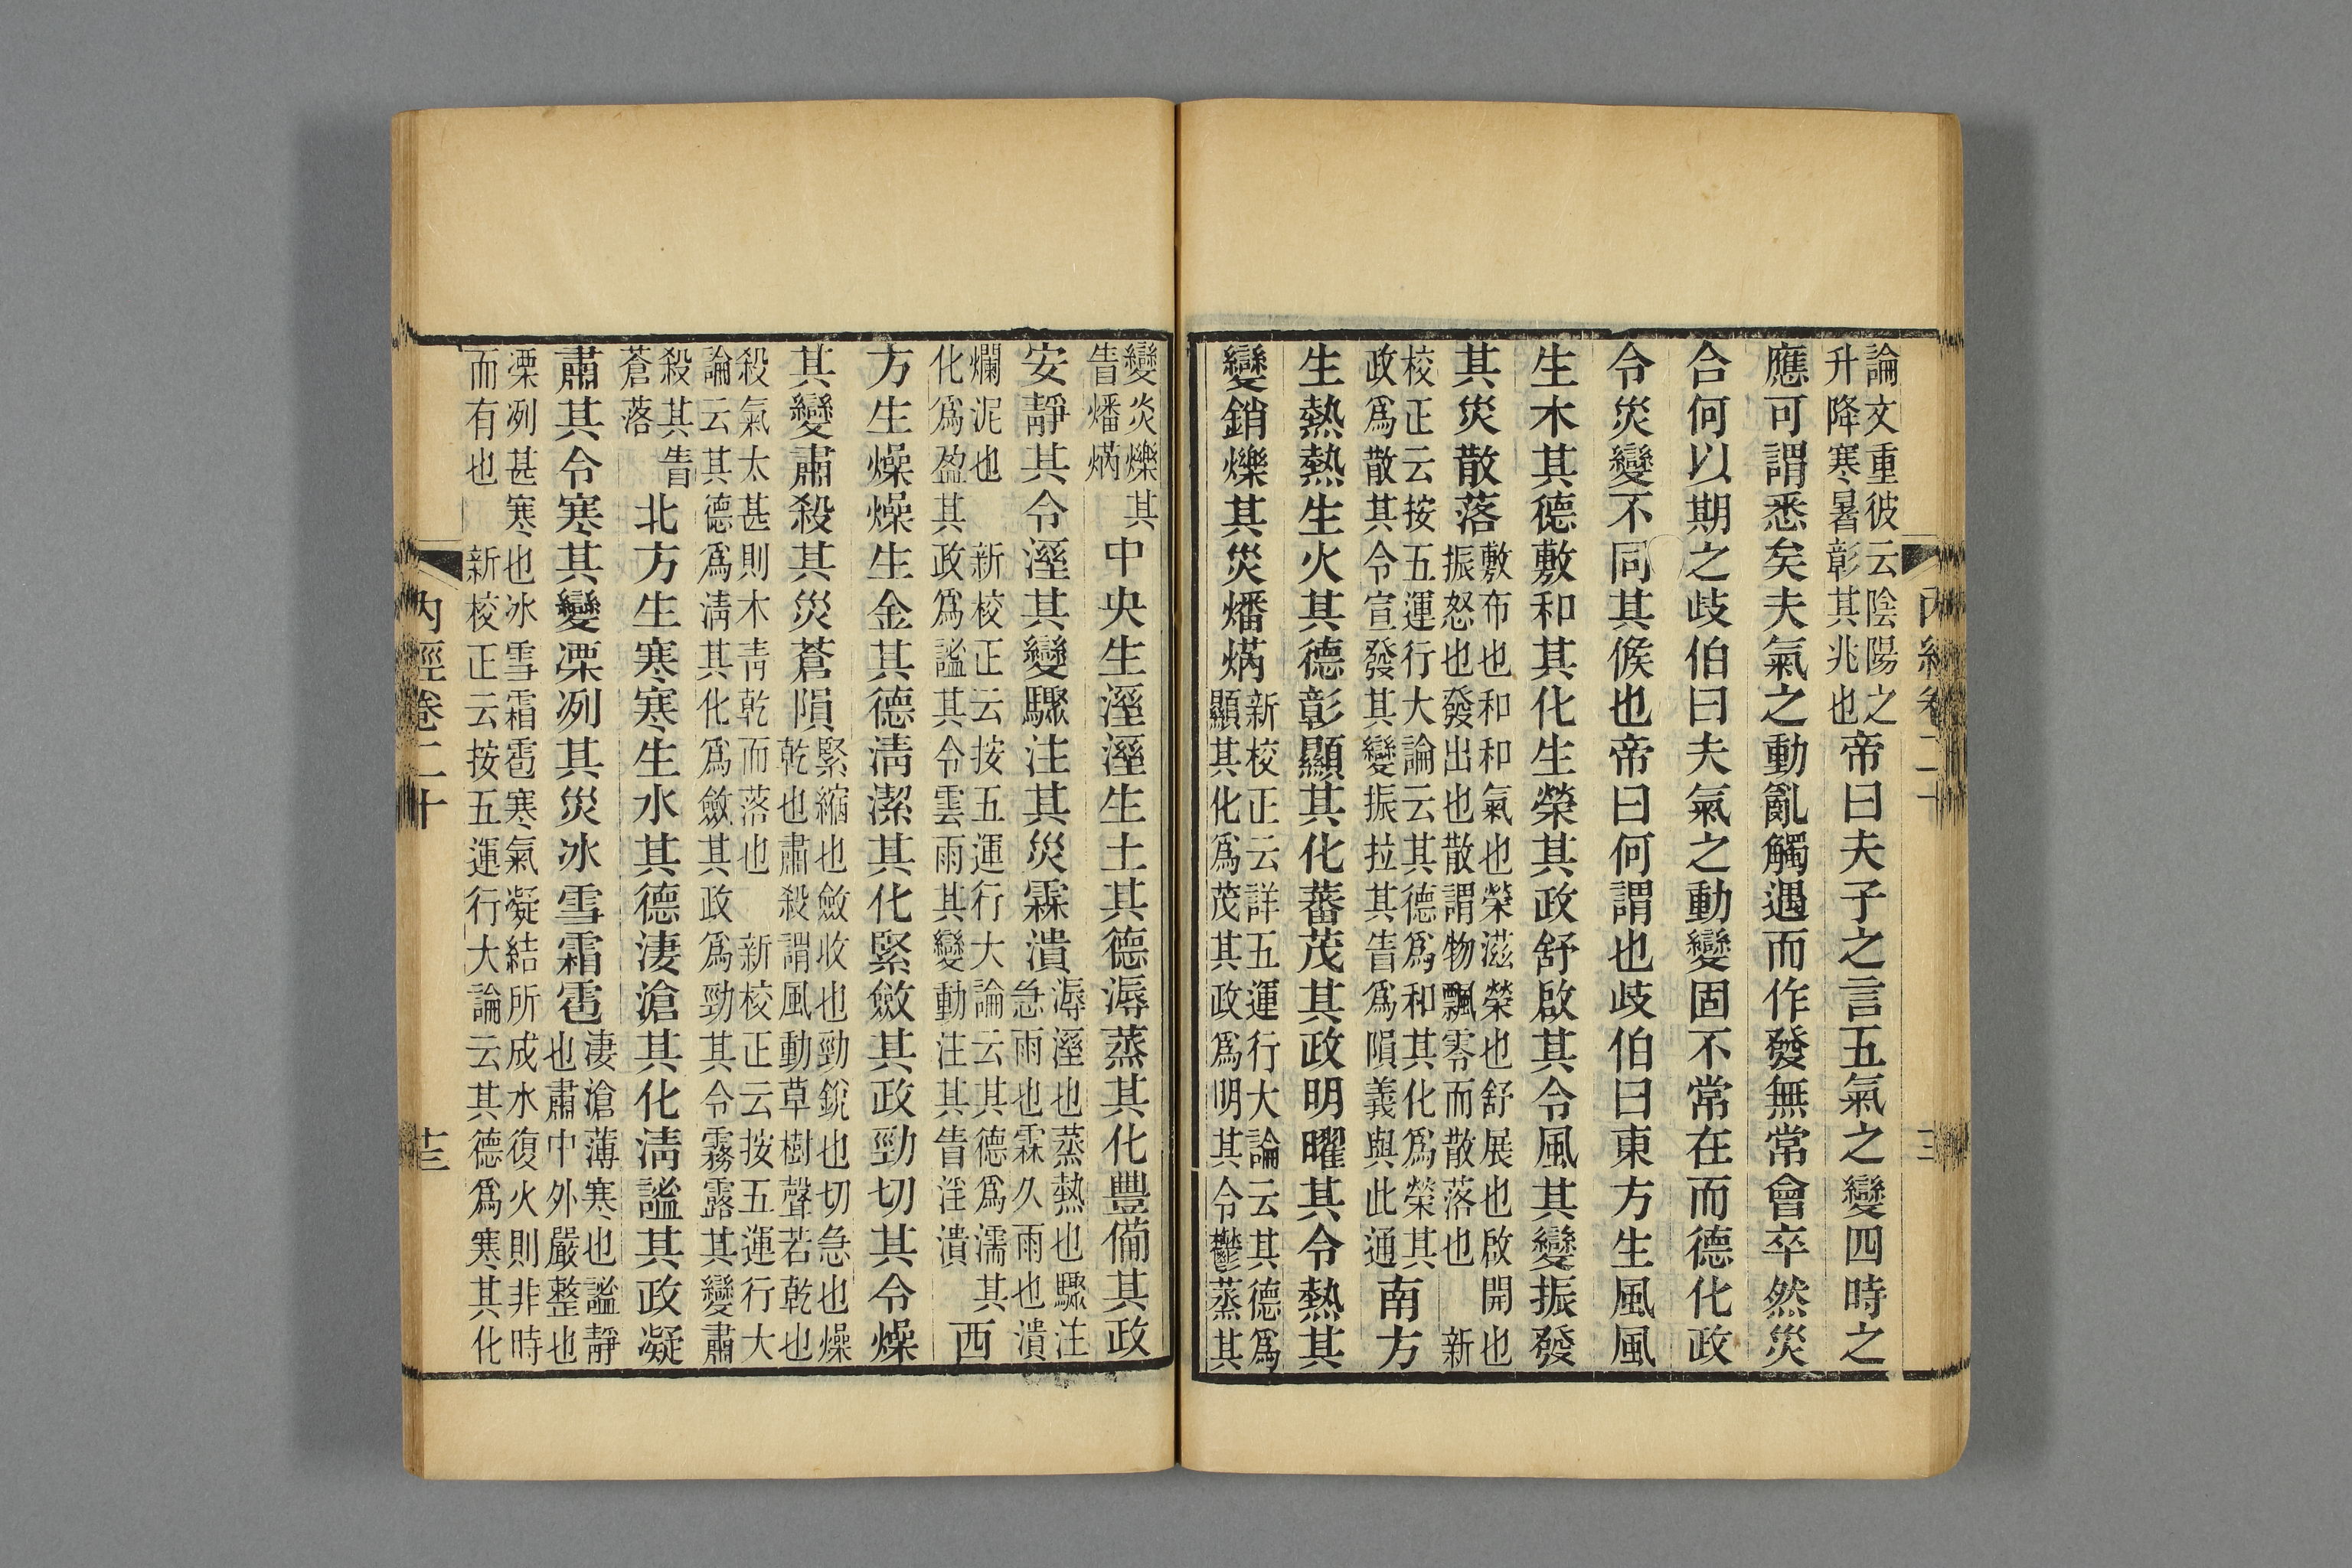 論文重彼云陰陽之
升降寒暑彰其兆也
帝曰夫子之言五氣之變四時之
應可謂悉矣夫氣之動亂觸遇而作發無常會卒然災
合何以期之歧伯曰夫氣之動變固不常在而德化政
令災變不同其候也帝曰何謂也歧伯曰東方生風風
生木其德敷和其化生榮其政舒啟其令風其變振發
其災散落
敷布也和和氣也榮滋榮也舒展也啟開也
振怒也發出也散謂物飄零而散落也 新
校正云按五運行大論云其德爲和其化爲榮其
政爲散其令宣發其變振拉其眚爲隕義與此通
南方
生熱熱生火其德彰顯其化蕃茂其政明曜其令熱其
變銷爍其災燔焫
新校正云詳五運行大論云其德爲
顯其化爲茂其政爲明其令鬱蒸其
三
變炎爍其
眚燔焫
中央生溼溼生土其德溽蒸其化豐備其政
安靜其令溼其變驟注其災霖潰
溽溼也蒸熱也驟注
急雨也霖久雨也潰
爛泥也 新校正云按五運行大論云其德爲濡其
化爲盈其政爲謐其令雲雨其變動注其眚淫潰
西
方生燥燥生金其德淸潔其化緊斂其政勁切其令燥
其變肅殺其災蒼隕
緊縮也斂收也勁銳也切急也燥
乾也肅殺謂風動草樹聲若乾也
殺氣太甚則木靑乾而落也 新校正云按五運行大
論云其德爲淸其化爲斂其政爲勁其令霧露其變肅
殺其眚
蒼落
北方生寒寒生水其德淒滄其化淸謐其政凝
肅其令寒其變凓冽其災冰雪霜雹
淒滄薄寒也謐靜
也肅中外嚴整也
凓冽甚寒也冰雪霜雹寒氣凝結所成水復火則非時
而有也 新校正云按五運行大論云其德爲寒其化
內經卷二十